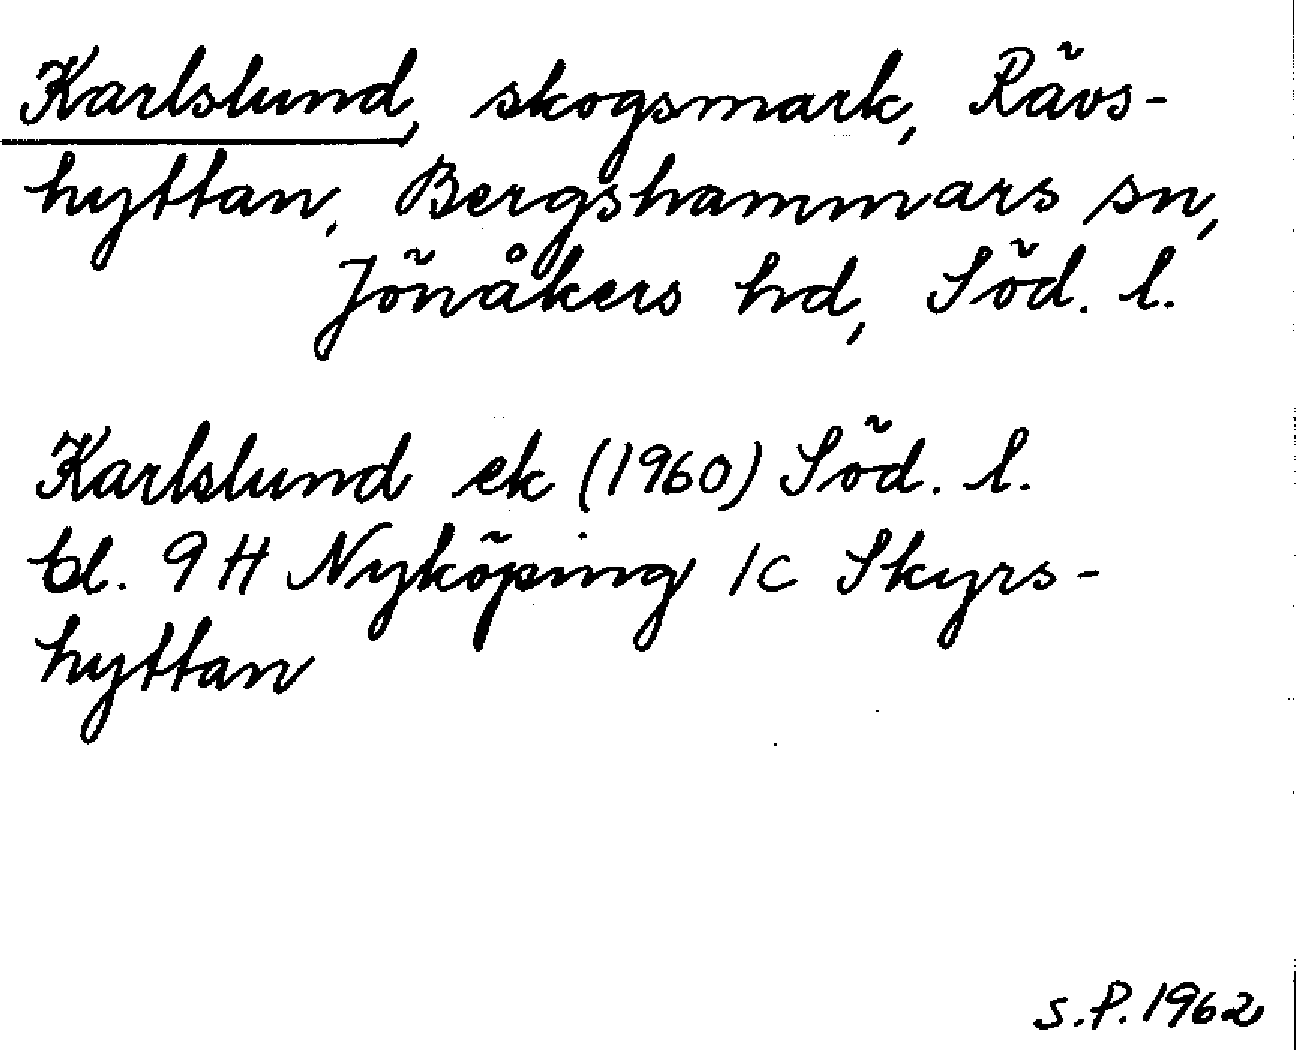 Karlslund, skogsmark, Rävs-
hyttan, Bergshammars sn,
Jönåkers hd, Söd. l.
Karlslund ek (1960) Söd. l.
bl. 9 H Nyköping 1c Skyrs-
hyttan
S.P. 1962